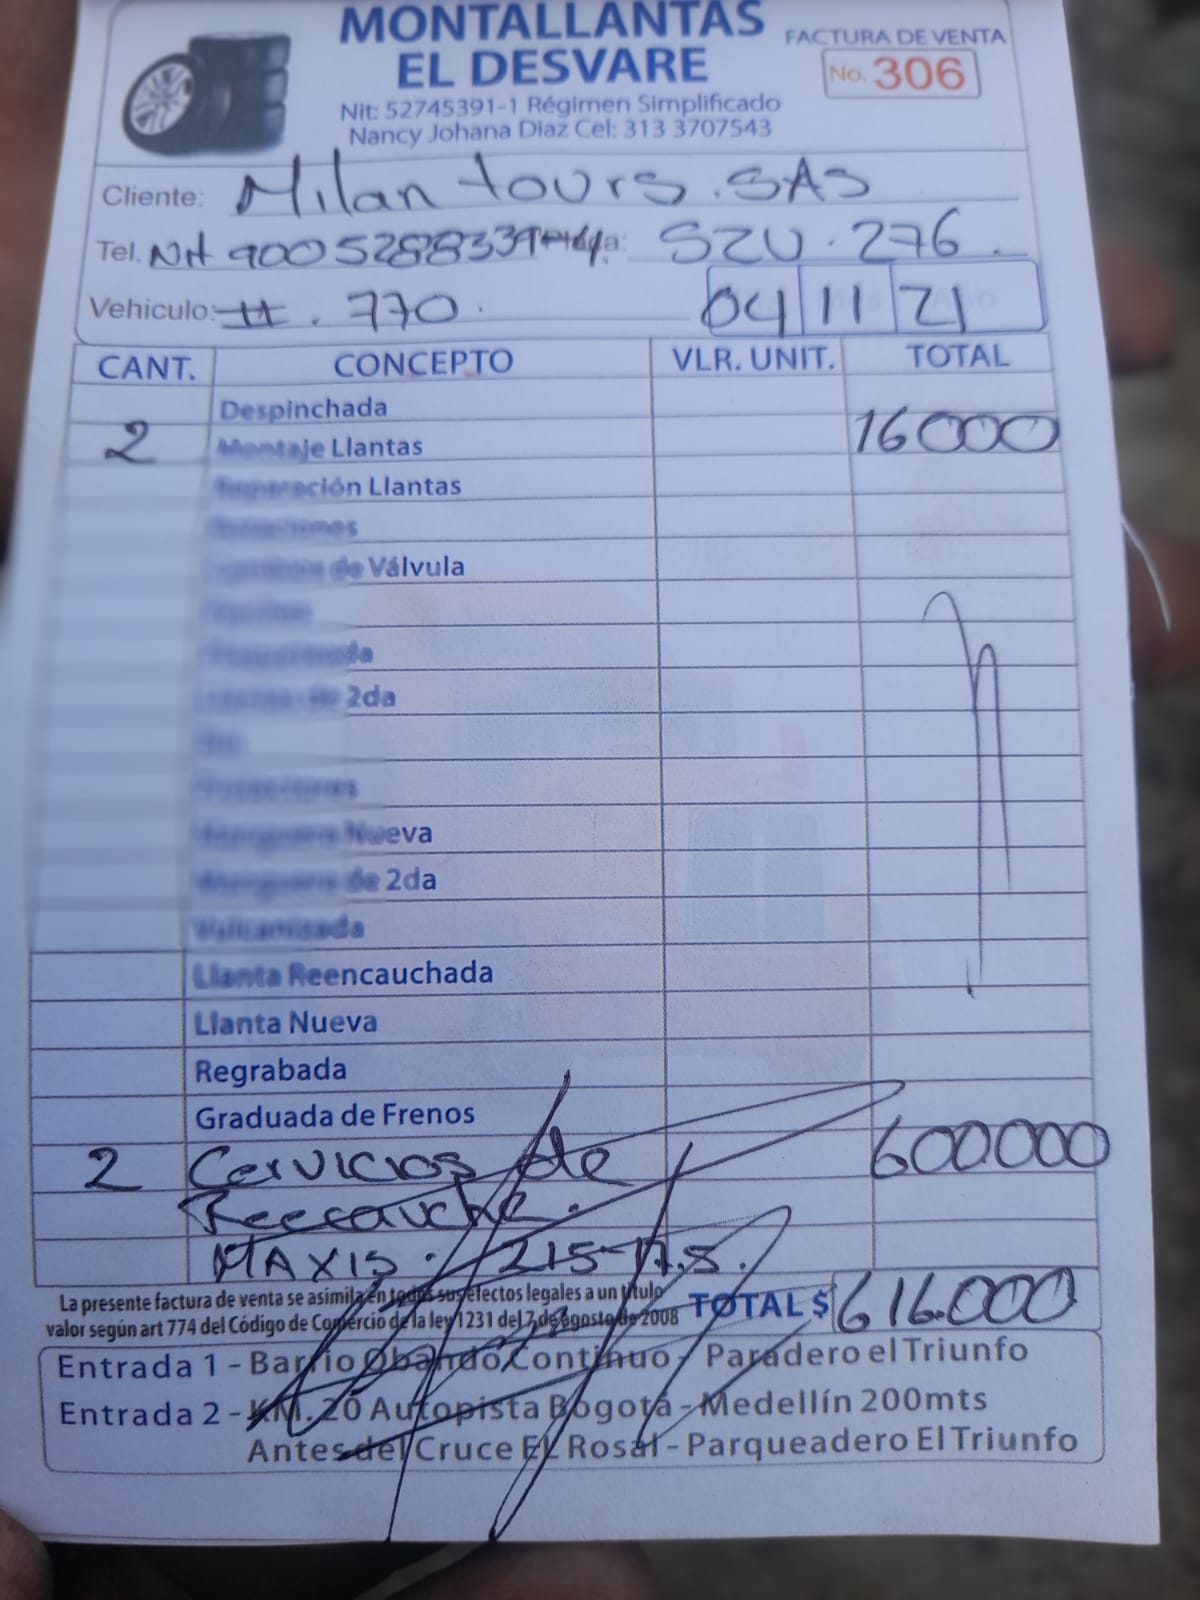 MONTALLANTAS
EL DESVARE
FACTURA DE VENTA
No. 306
Nit: 52745391-1 Régimen Simplificado
Nancy Johana Diaz Cel: 313 3707543
Cliente: Milan tours. SAS
Tel. Nit 900528833 SZU. 276.
Vehiculo: #. 770. 04 11 21
CANT. CONCEPTO VLR. UNIT. TOTAL
Despinchada
2 Montaje Llantas 16000
Reparación Llantas
de Válvula
de 2da
Nueva
de 2da
Vulcanizada
Llanta Reencauchada
Llanta Nueva
Regrabada
Graduada de Frenos
2 Cervicios de 600000
MAXIS. 215-17.5.
La presente factura de venta se asimila en todos sus efectos legales a un titulo
valor según art 774 del Código de Comercio de la ley 1231 del 7 de agosto de 2008
TOTAL $ 616.000
Entrada 1 - Barrio Obando Continuo - Paradero el Triunfo
Entrada 2 - KM. 20 Autopista Bogotá - Medellín 200mts
Antes del Cruce EL Rosal - Parqueadero El Triunfo